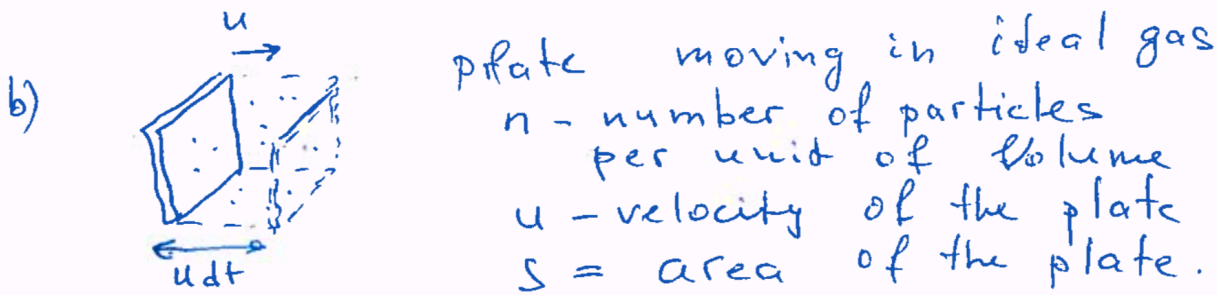 b)
u
u dt
plate moving in ideal gas
n - number of particles
per unit of Volume
u - velocity of the plate
S = area of the plate.